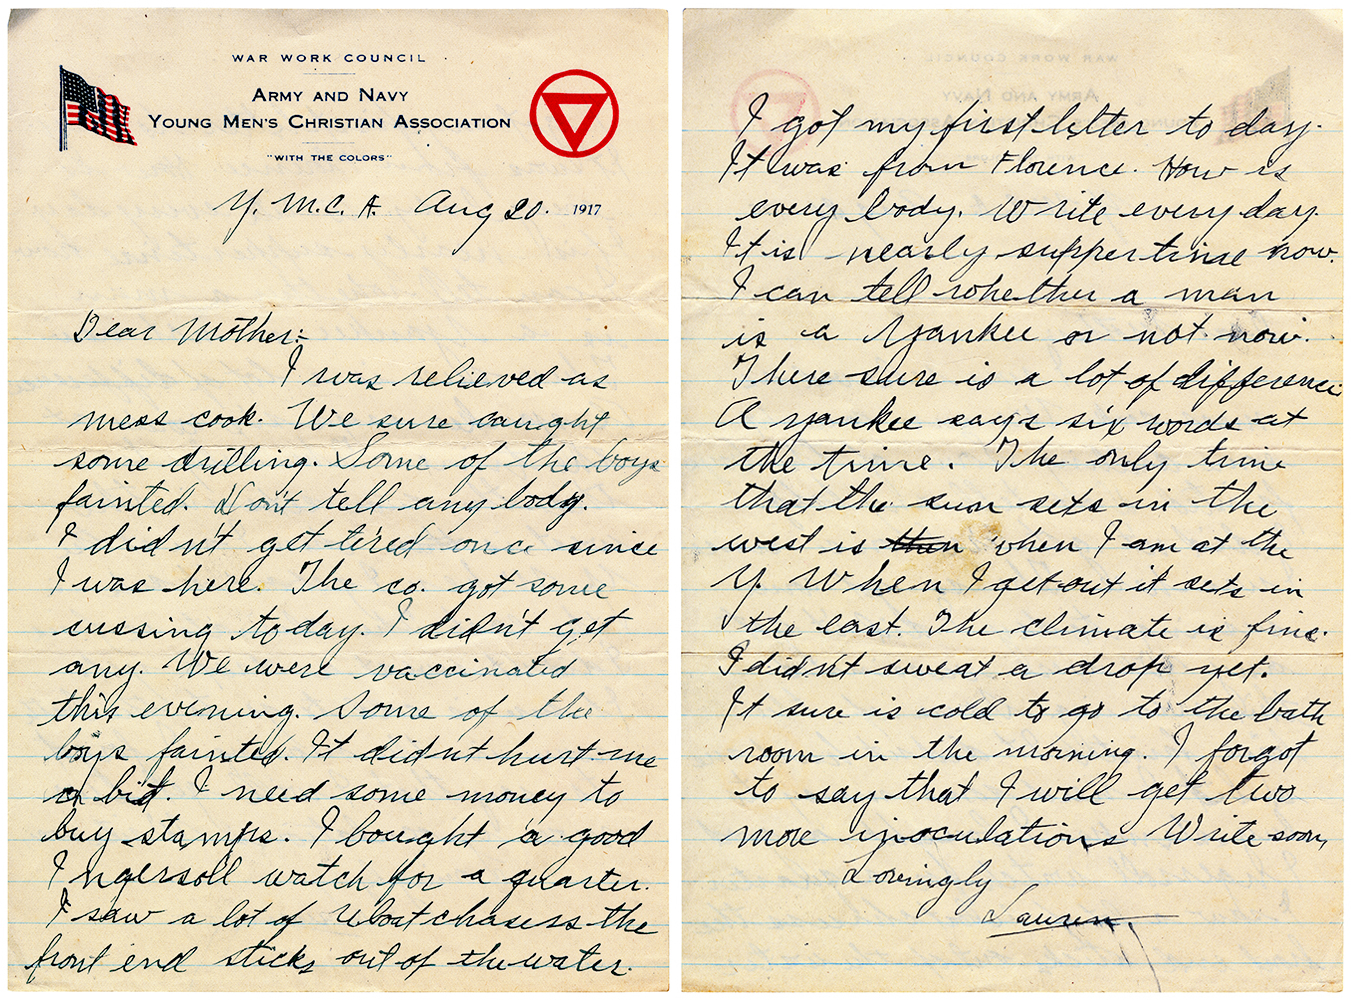 WAR WORK COUNCIL
ARMY AND NAVY
YOUNG MEN'S CHRISTIAN ASSOCIATION
"WITH THE COLORS"
Y. M. C. A. Aug 20. 1917
Dear Mother:-
I was relieved as
mess cook. We sure caught
some drilling. Some of the boys
fainted. Don't tell any body.
I didn't get tired once since
I was here. The co. got some
cussing to day. I didn't get
any. We were vaccinated
this evening. Some of the
boys fainted. It didn't hurt me
a bit. I need some money to
buy stamps. I bought a good
Ingersoll watch for a quarter.
I saw a lot of Uboat chasers the
front end sticks out of the water.
I got my first letter to day.
It was from Florence. How is
every body. Write every day.
It is nearly supper time now.
I can tell whether a man
is a yankee or not now.
There sure is a lot of difference
A yankee says six words at
the time. The only time
that the sun sets in the
west is then when I am at the
Y. When I get out it sets in
the east. The climate is fine.
I didn't sweat a drop yet.
It sure is cold to go to the bath
room in the morning. I forgot
to say that I will get two
more inoculations Write soon,
Lovingly
Lauren.